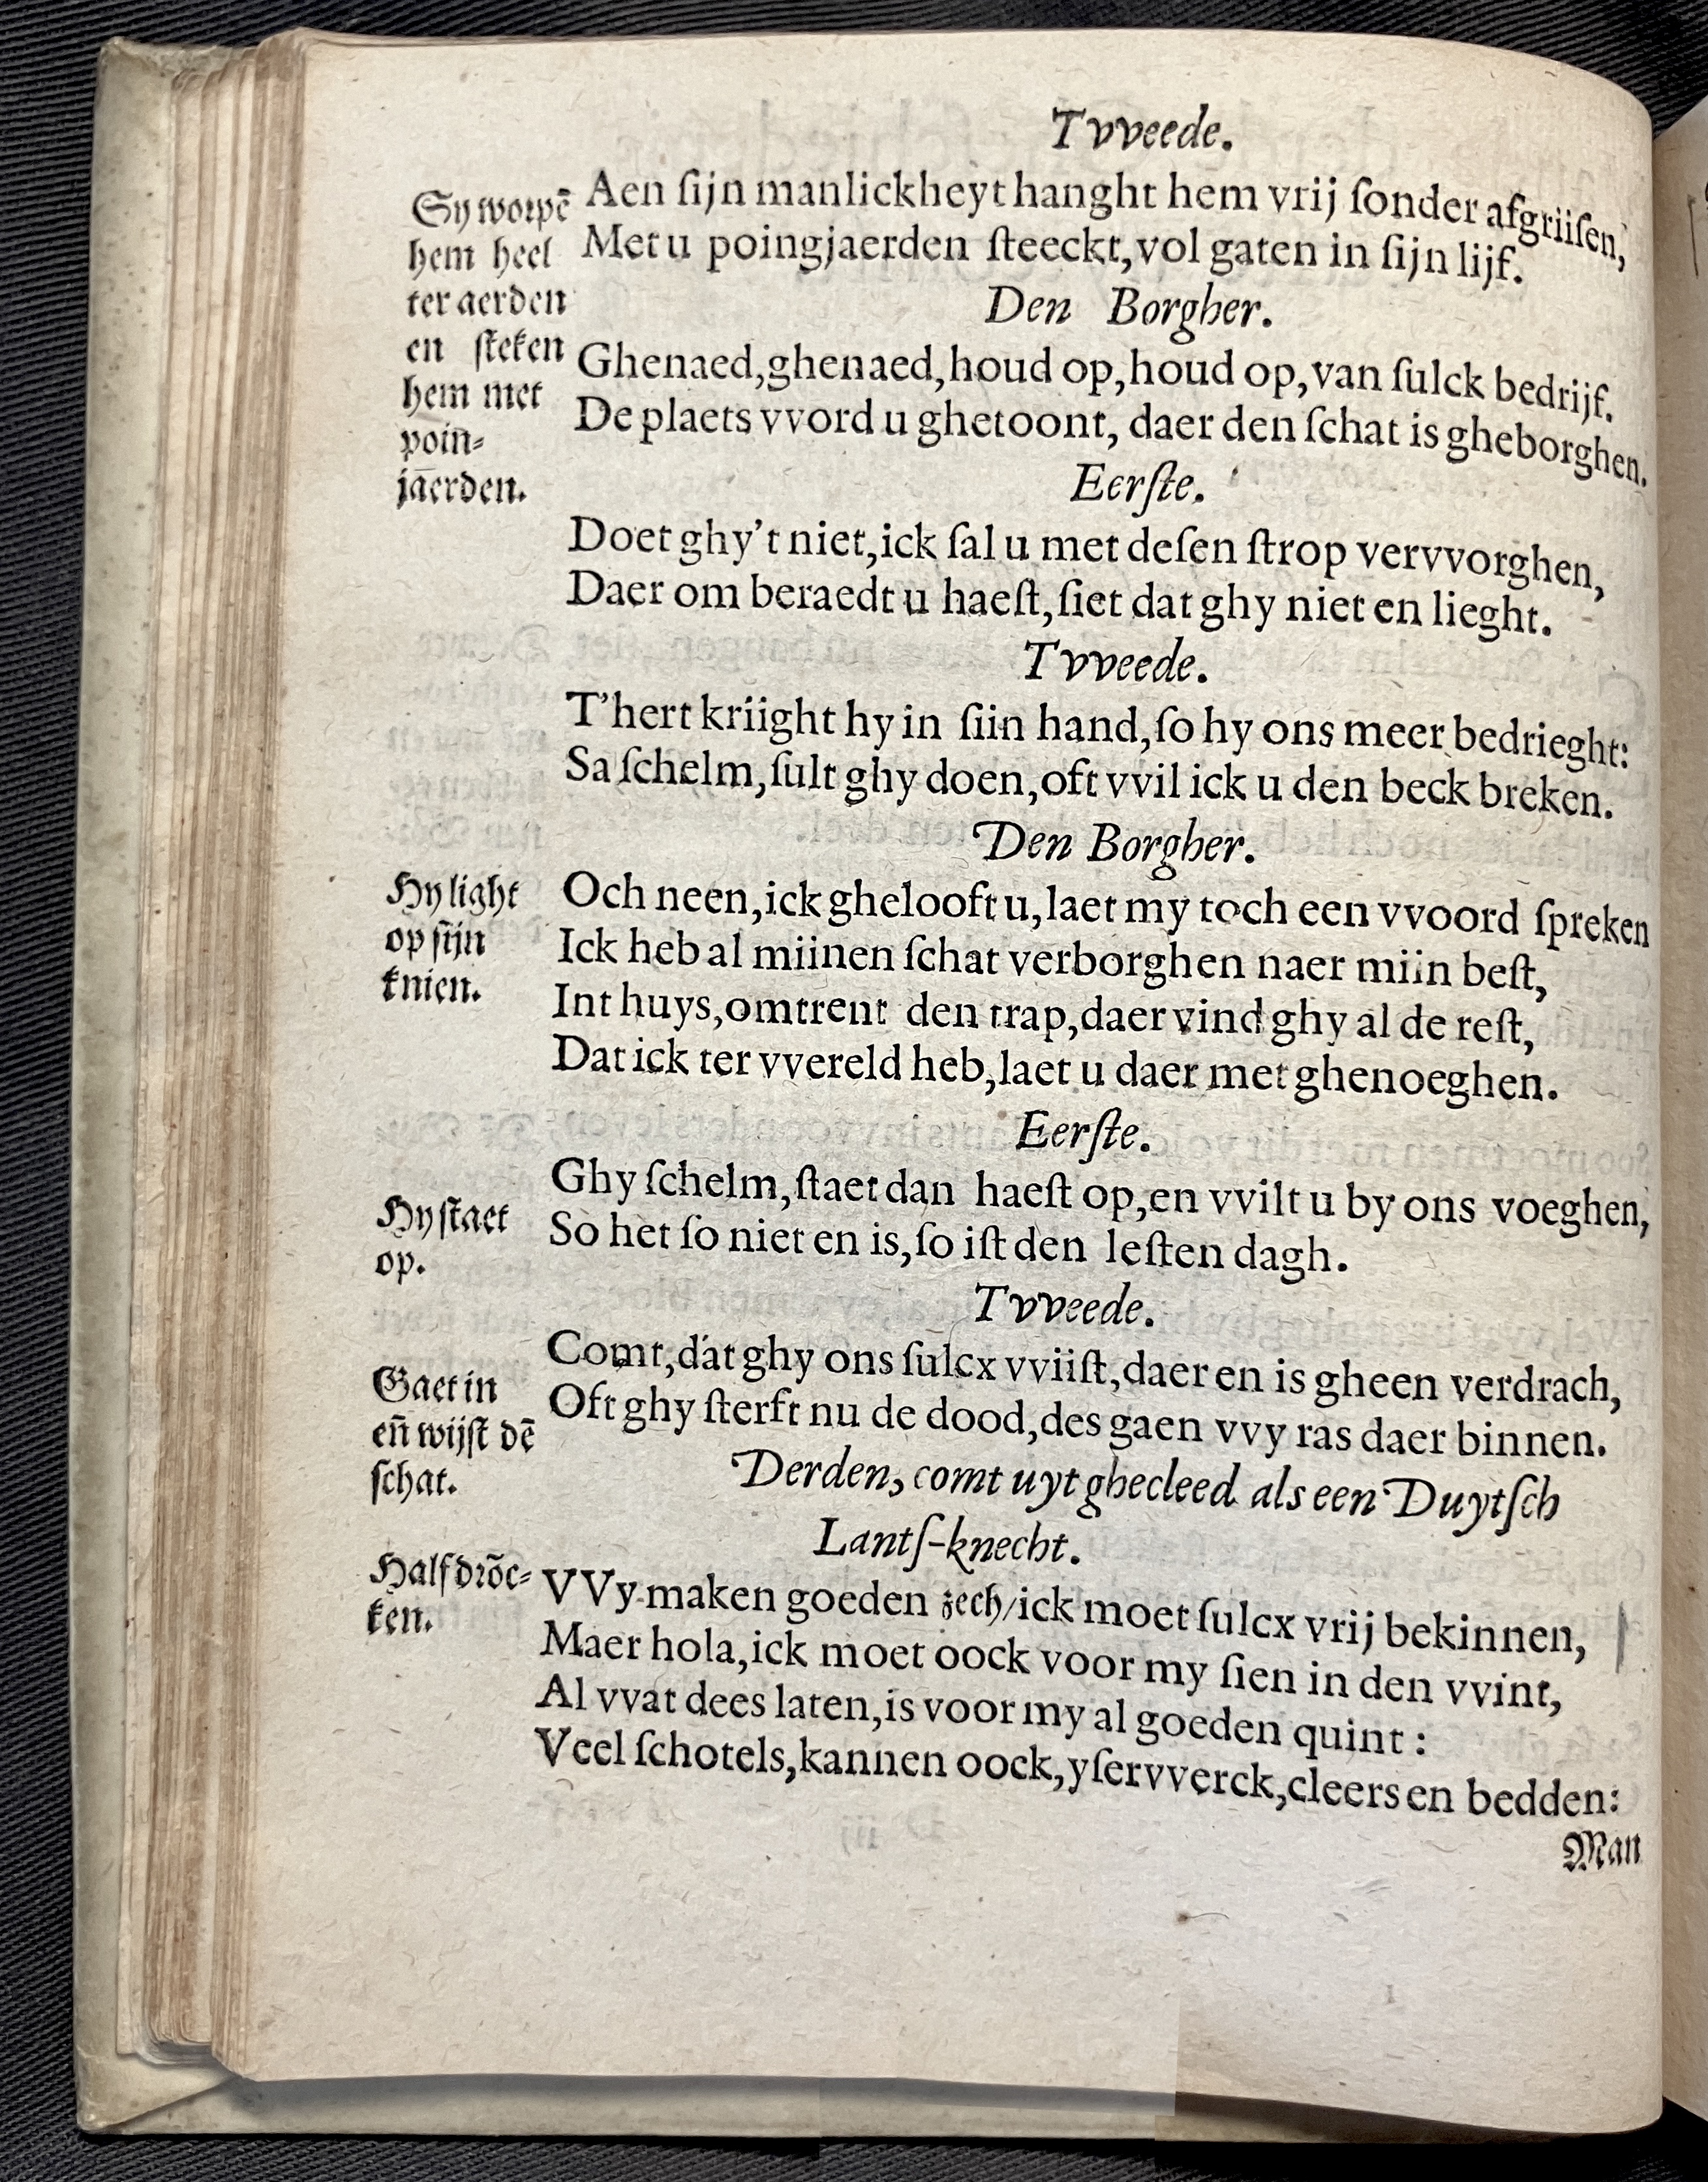 Tvveede.
Sy worpē
hem heel
ter aerden
en steken
hem met
poin-
jaerden.
Aen ſijn manlickheyt hanght hem vrij ſonder afgriiſen,
Met u poingjaerden ſteeckt, vol gaten in ſijn lijf.
Den Borgher.
Ghenaed, ghenaed, houd op, houd op, van ſulck bedrijf.
De plaets vvord u ghetoont, daer den ſchat is gheborghen.
Eerſte.
Doet ghy't niet, ick ſal u met deſen ſtrop vervvorghen,
Daer om beraedt u haeſt, ſiet dat ghy niet en lieght.
Tvveede.
T'hert kriight hy in ſiin hand, ſo hy ons meer bedrieght:
Sa ſchelm, ſult ghy doen, oft vvil ick u den beck breken.
Den Borgher.
Hy light
op ſijn
knien.
Och neen, ick ghelooft u, laet my toch een vvoord ſpreken
Ick heb al miinen ſchat verborghen naer miin beſt,
Int huys, omtrent den trap, daer vind ghy al de reſt,
Dat ick ter vvereld heb, laet u daer met ghenoeghen.
Eerſte.
Hy ſtaet
op.
Ghy ſchelm, ſtaet dan haeſt op, en vvilt u by ons voeghen,
So het ſo niet en is, ſo iſt den leſten dagh.
Tvveede.
Gaet in
en̄ wijſt dē
ſchat.
Comt, dat ghy ons ſulcx vviiſt, daer en is gheen verdrach,
Oft ghy ſterft nu de dood, des gaen vvy ras daer binnen.
Derden, comt uyt ghecleed als een Duytſch
Lantſ-knecht.
Half drōc-
ken.
VVy maken goeden zech/ ick moet ſulcx vrij bekinnen,
Maer hola, ick moet oock voor my ſien in den vvint,
Al vvat dees laten, is voor my al goeden quint :
Veel ſchotels, kannen oock, yſervverck, cleers en bedden:
Man